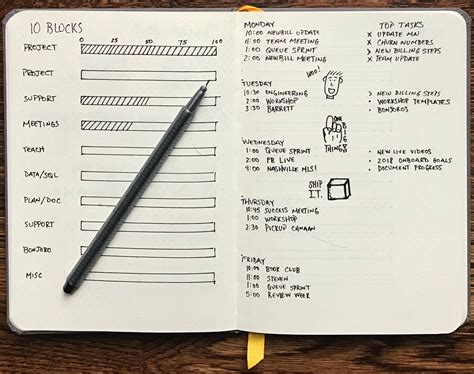 10 BLOCKS
0 25 50 75 100
PROJECT
PROJECT
SUPPORT
MEETINGS
TEACH
DATA/SQL
PLAN/DOC
SUPPORT
BONJORO
MISC
MONDAY
10:00 NEWBILL UPDATE
11:00 TEAM MEETING
1:00 QUEUE SPRINT
2:00 NEWBILL MEETING
TOP TASKS
X UPDATE MN
X CHURN NUMBERS
> NEW BILLING STEPS
X TEAM UPDATE
WOO!
TUESDAY
10:30 ENGINEERING
2:00 WORKSHOP
3:30 BARRETT
> NEW BILLING STEPS
• WORKSHOP TEMPLATES
• BONJOROS
ONE BIG THING!
WEDNESDAY
1:00 QUEUE SPRINT
2:00 PB LIVE
4:00 NASHVILLE MLS!
• NEW LIVE VIDEOS
• 2018 ONBOARD GOALS
• DOCUMENT PROGRESS
SHIP
IT.
THURSDAY
10:45 SUCCESS MEETING
1:00 WORKSHOP
2:30 PICKUP CANAAN
FRIDAY
10:00 BOOK CLUB
11:00 STEVEN
1:00 QUEUE SPRINT
5:00 REVIEW WEEK